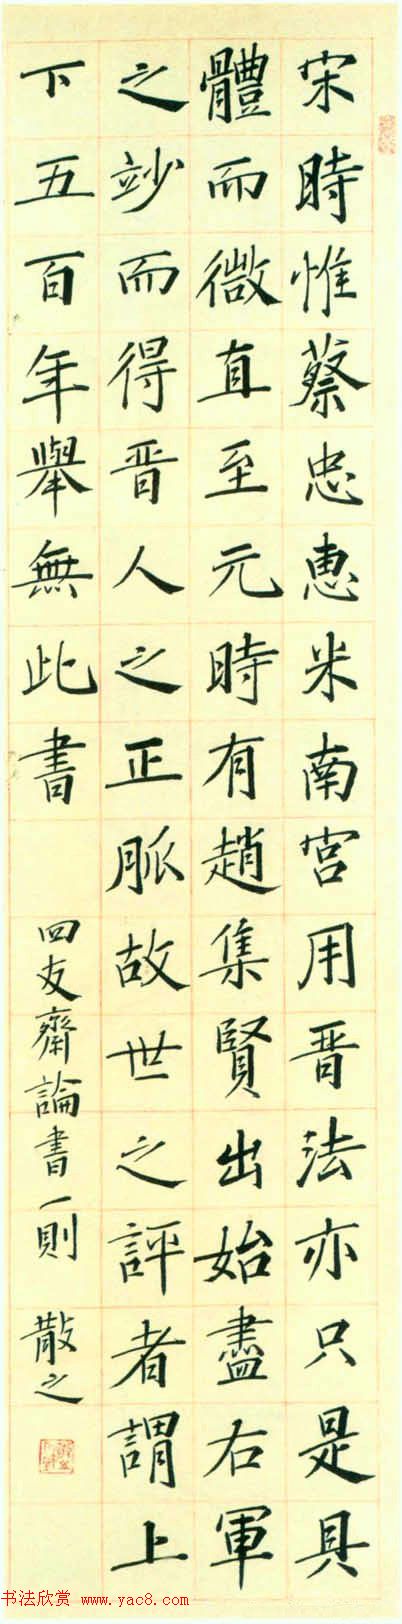 宋時惟蔡忠惠米南宮用晋法亦只是具
體而微直至元時有趙集賢出始盡右軍
之妙而得晋人之正脈故世之評者謂上
下五百年舉無此書
四友齋論書一則 散之
书法欣赏 www.yac8.com